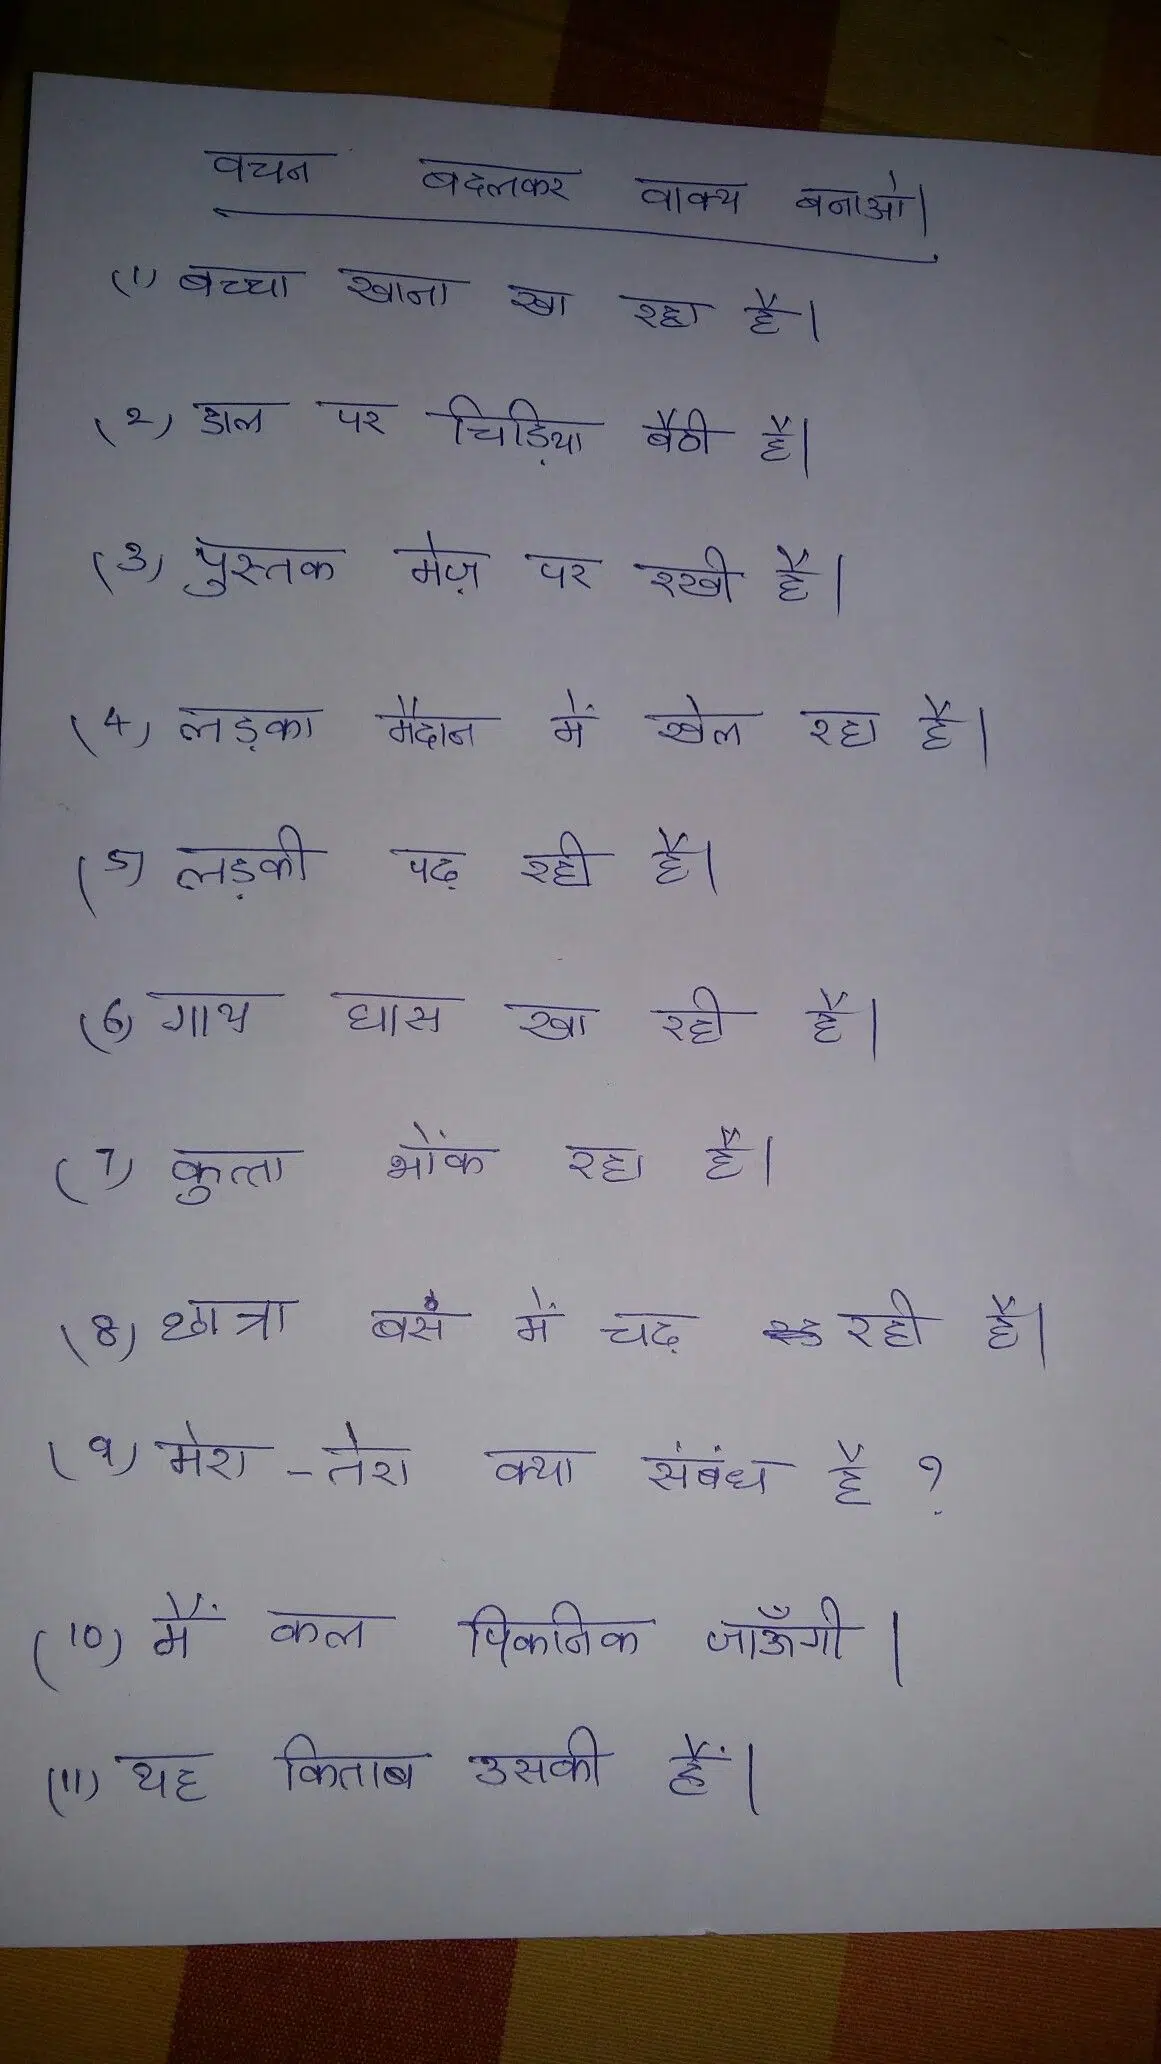 वचन बदलकर वाक्य बनाओ।
(1) बच्चा खाना खा रहा है।
(2) डाल पर चिड़िया बैठी है।
(3) पुस्तक मेज़ पर रखी है।
(4) लड़का मैदान में खेल रहा है।
(5) लड़की पढ़ रही है।
(6) गाय घास खा रही है।
(7) कुत्ता भोंक रहा है।
(8) छात्रा बस में चढ़ रही है।
(9) मेरा - तेरा क्या संबंध है ?
(10) मैं कल पिकनिक जाऊँगी।
(11) यह किताब उसकी हैं।